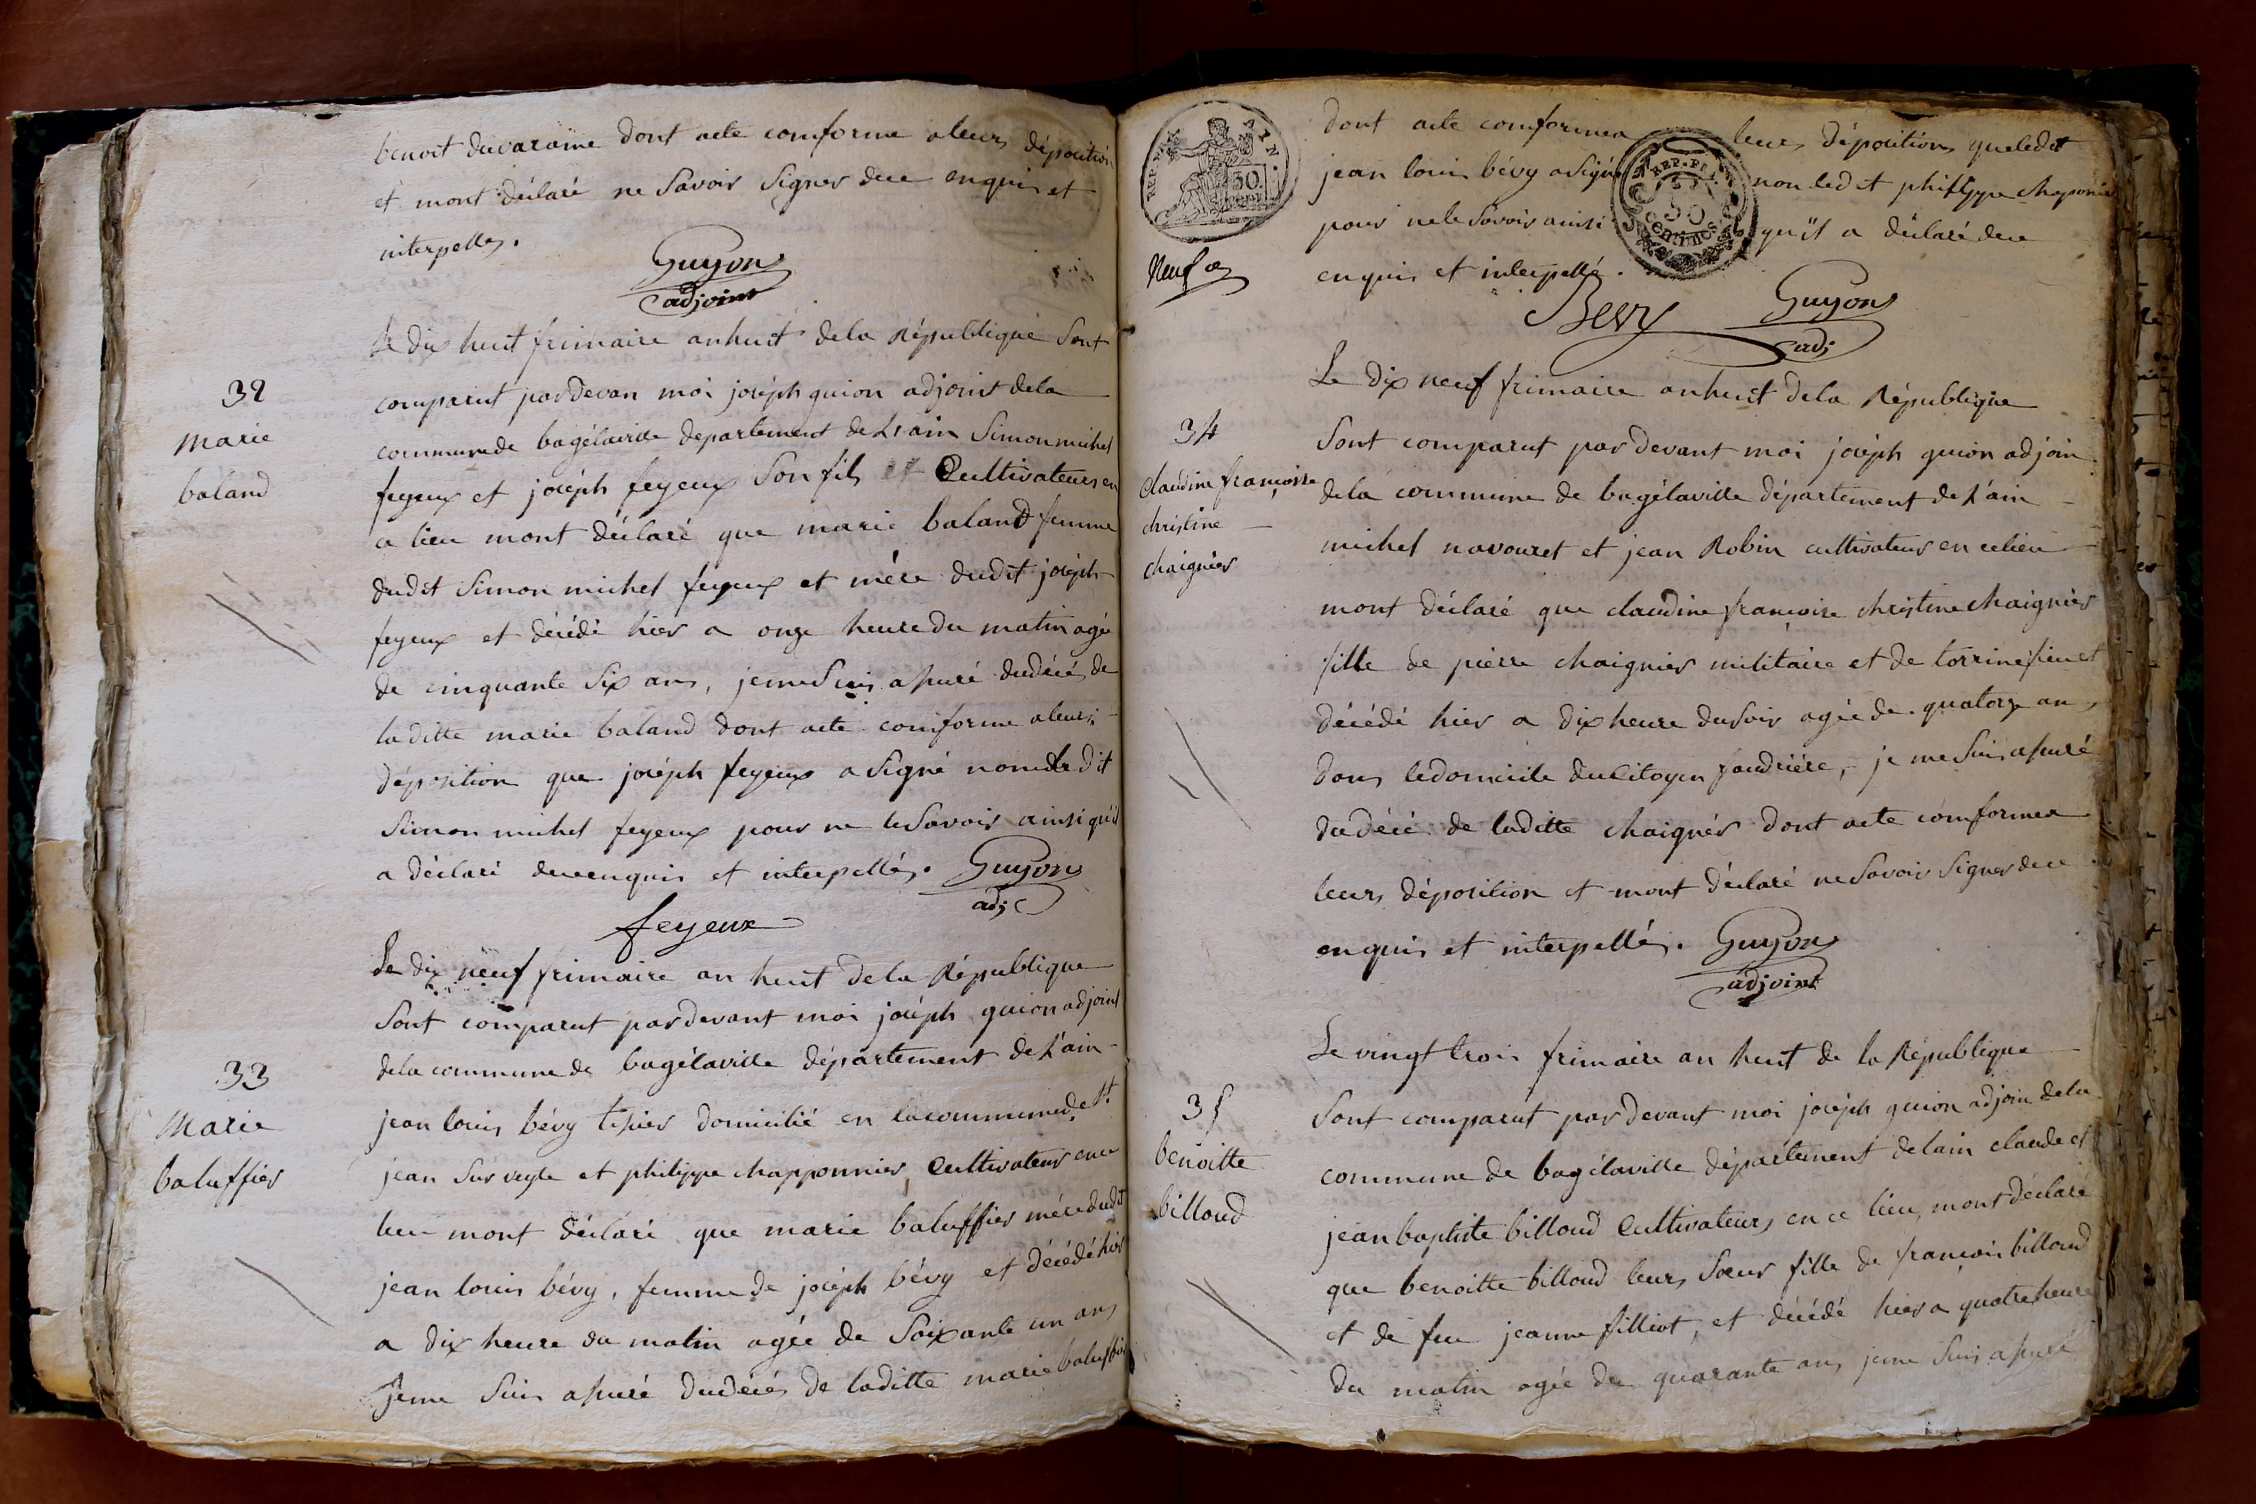 benoit duvarame dont acte comforme a leurs déposition
et mont déclaré ne Savoir Signer dece enquis et
interpellés.
Guyon
adjoint
Le dix huit frimaire an huit dela République Sont
32
comparut pardevan moi joséph guion adjoint dela
marie
commune de bagélaville departement de L'ain Simon michel
baland
feyeux et joséph feyeux Son fils Cultivateurs en
ce lieu mont déclaré que marie baland femme
dudit Simon michel feyeux et mére dudit joséph
feyeux et décédé hier a onze heure du matin agé
de cinquante Six ans, jeme Suis assuré dudécés de
laditte marie baland dont acte comforme a leurs
déposition que joséph feyeux a Signé non ledit
Simon michel feyeux pour ne le Savoir ainsi qu'il
a déclaré dece enquis et interpellés. Guyon
adj
feyeux
Le dix neuf frimaire an huit dela République
Sont comparut pardevant moi joséph guion adjoint
33
dela commune de bagélaville département de L'ain
Marie
jean louis bévy tissier domicilié en la commune de St
baluffier
jean Sur veyle et philippe chapponnier Cultivateur en ce
lieu mont déclaré que marie baluffier mére dudit
jean louis bévy, femme de joséph bévy et décédé hier
a dix heure du matin agée de Soixante un ans
jeme Suis assuré dudécés de laditte marie baluffier
REP. FRA
50.
Neuf
dont acte comforme a leurs déposition que ledit
REP. FR.
50
Centimes
jean louis bévy a Signé non ledit philippe chaponier
pour ne le Savoir ainsi qu'il a déclaré dece
enquis et interpellé.
Bevy Guyon
adj
Le dix neuf frimaire an huit dela République
34
Sont comparut par devant moi joséph guion adjoin
claudine françoise
christine
chaignier
dela commune de bagélaville département de L'ain
michel navouret et jean Robin cultivateurs en ce lieu
mont déclaré que claudine françoise christine chaignier
fille de pierre chaignier militaire et de
décédé hier a dix heure du Soir agée de quatorze an,
dans ledomicile du Citoyen, je me Suis assuré
du décé de laditte chaignér dont acte comforme a
leurs déposition et mont déclaré ne Savoir Signer dece
enquis et interpellés. Guyon
adjoint
Le vingt trois frimaire an huit de la République
35
benoitte
billoud
Sont comparut par devant moi joséph guion adjoin dela
commune de bagélaville département delain claude et
jean baptiste billoud Cultivateurs en ce lieu, mont déclaré
que benoitte billoud leurs Sœur fille de francois billoud
et de feu jeanne filliot, et décédé hier a quatre heure
du matin agée de quarante ans jeme Suis assuré